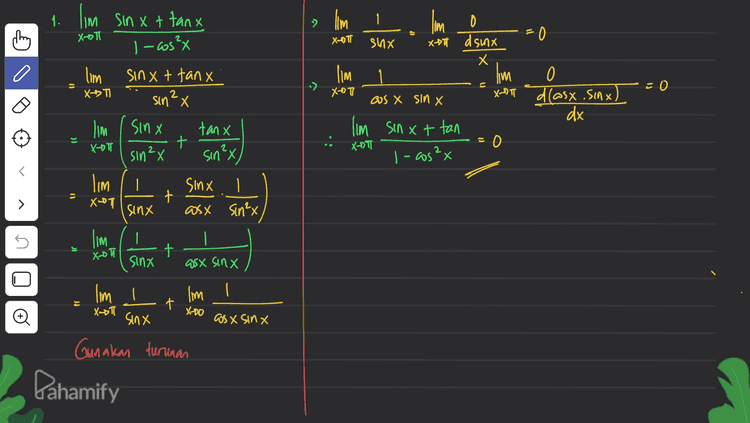 1. lim x→π (sin x + tan x) / (1 - cos²x)
= lim x→π (sin x + tan x) / sin²x
= lim x→π (sin x / sin²x + tan x / sin²x)
= lim x→π (1 / sin x + sin x / cos x · 1 / sin²x)
= lim x→π (1 / sin x + 1 / cos x sin x)
= lim x→π 1 / sin x + lim x→0 1 / cos x sin x
Gunakan turunan
Pahamify
> lim x→π 1 / sin x = lim x→π 0 / (d sin x / x) = 0
> lim x→π 1 / cos x sin x = lim x→π 0 / (d(cos x . sin x) / dx) = 0
∴ lim x→π (sin x + tan) / (1 - cos²x) = 0